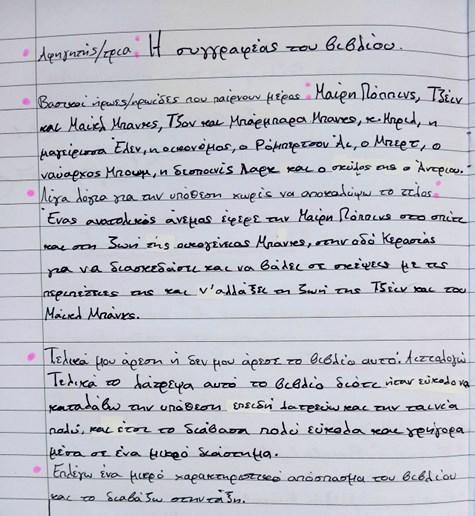 Αφηγητής/τρια: Η συγγραφέας του βιβλίου.
Βασικοί ήρωες/ηρωίδες που παίρνουν μέρος: Μαίρη Πόππινς, Τζέιν
και Μάικλ Μπανκς, Τζον και Μπάρμπαρα Μπανκς, κ. Μπριλ, η
μαγείρισσα Έλεν, η οικονόμος, ο Ρόμπερτσον Άι, ο Μπερτ, ο
ναύαρχος Μπουμ, η δεσποινίς Λαρκ και ο σκύλος της ο Άντριου.
Λίγα λόγια για την υπόθεση χωρίς να αποκαλύψω το τέλος:
Ένας ανατολικός άνεμος έφερε την Μαίρη Πόππινς στο σπίτι
και στη ζωή της οικογένειας Μπανκς, στην οδό Κερασιάς
για να διασκεδάσει και να βάλει σε σκέψεις με τις
περιπέτειες της και ν'αλλάξει τη ζωή της Τζέιν και του
Μάικλ Μπάνκς.
Τελικά μου άρεση ή δεν μου άρεσε το βιβλίο αυτό. Αιτιολογώ
Τελικά το λάτρεψα αυτό το βιβλίο διότι ήταν εύκολο να
καταλάβω την υπόθεση επειδή λατρεύω και την ταινία
πολύ, και έτσι το διάβασα πολύ εύκολα και γρήγορα
μέσα σε ένα μικρό διάστημα.
Επιλέγω ένα μικρό χαρακτηριστικό απόσπασμα του βιβλίου
και το διαβάζω στην τάξη.